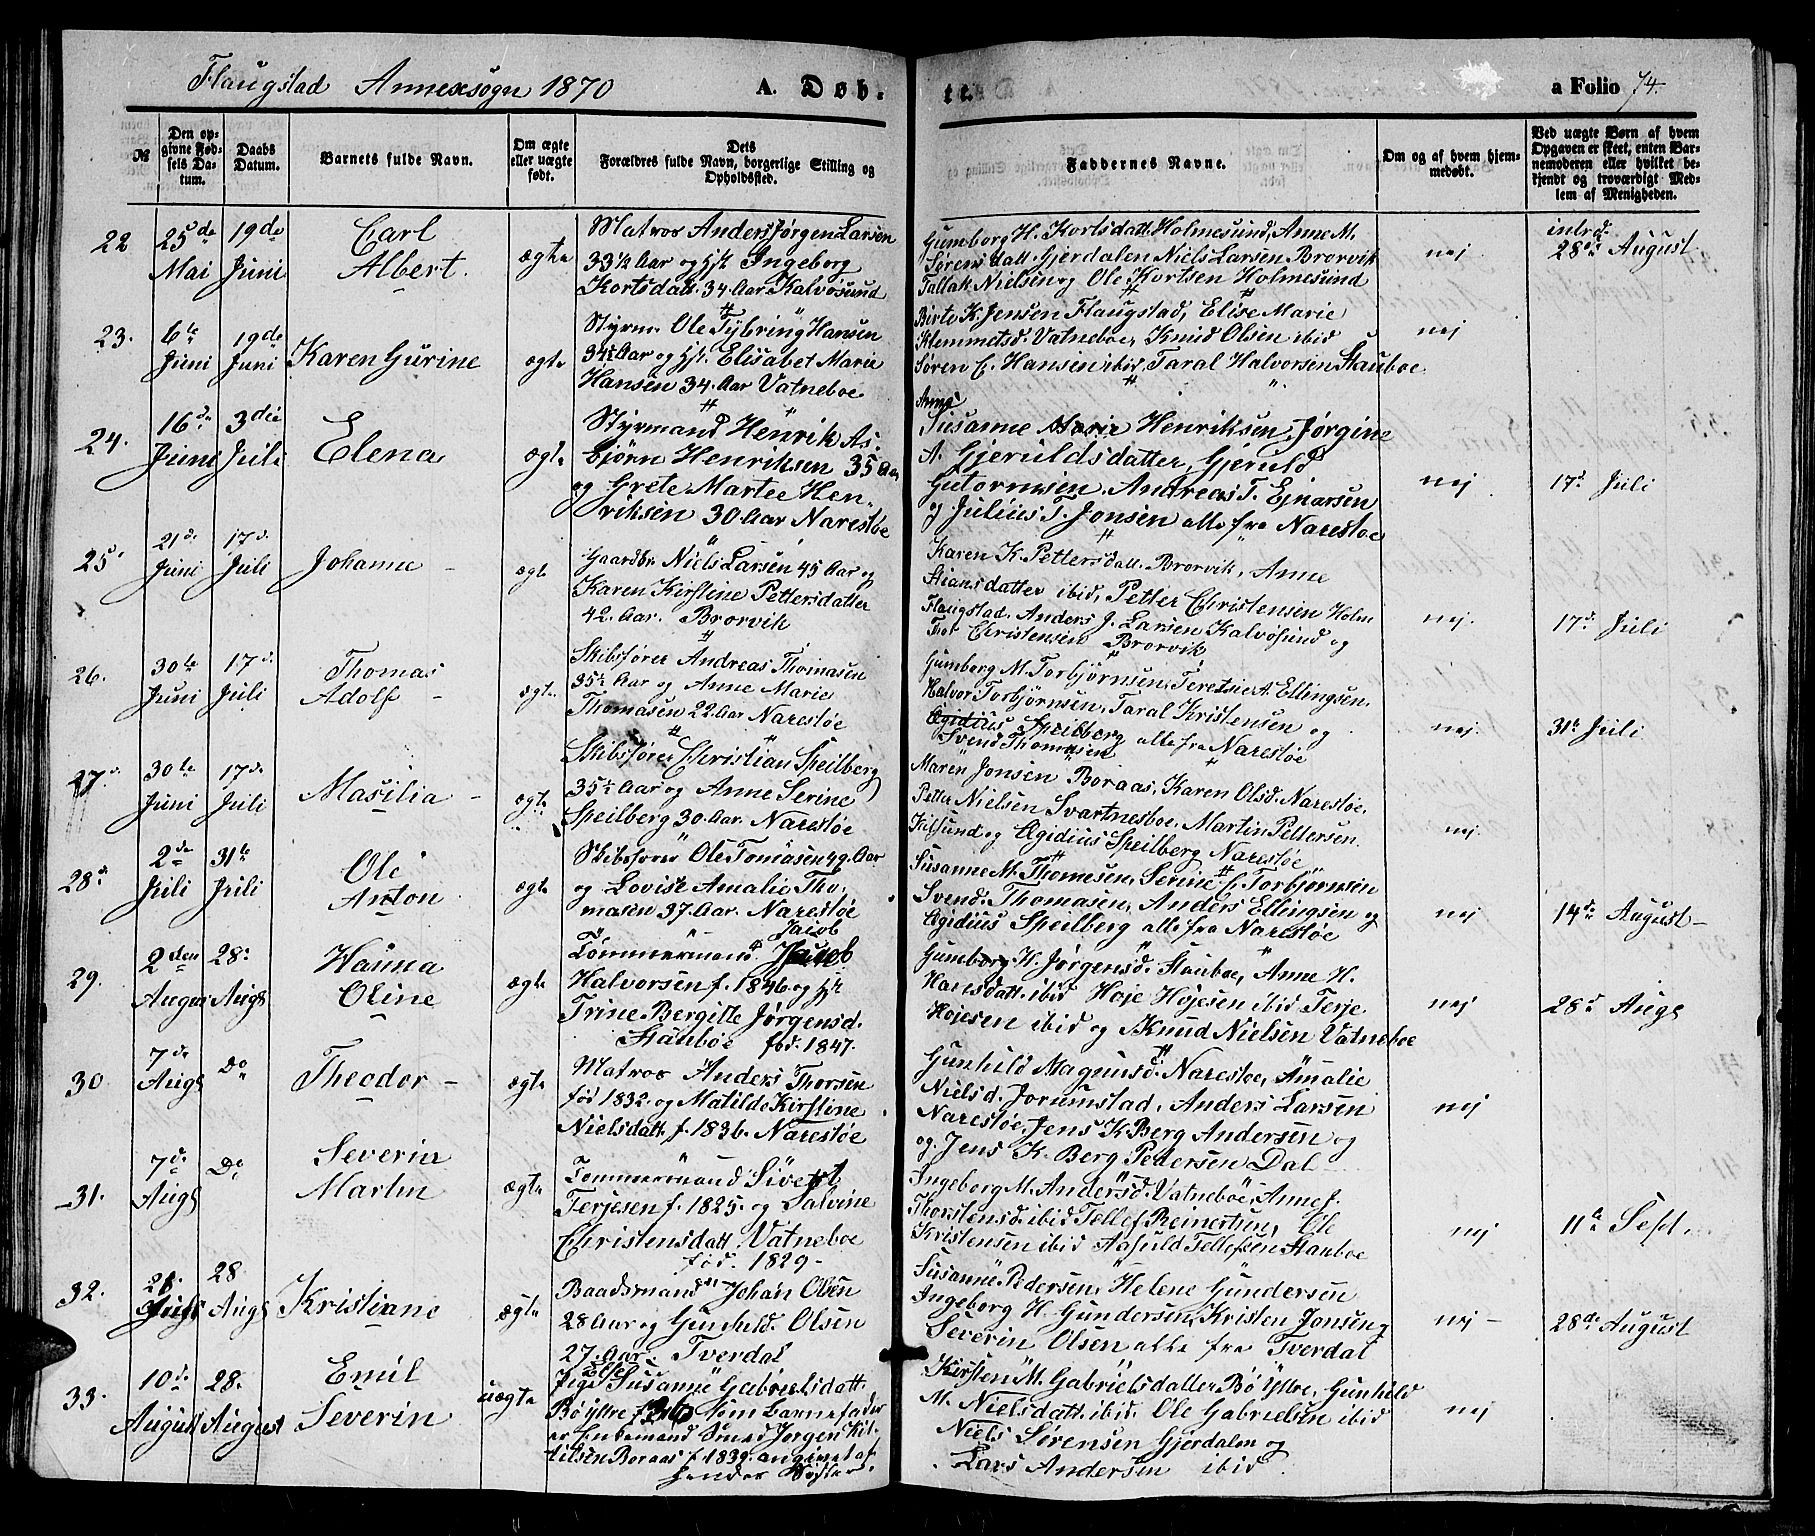 Flaugstad Annexsogn 1870 A. Døb- te. a Folio 74.
№
Den opgivne Fødsels Datum.
Daabs Datum.
Barnets fulde Navn.
Om ægte eller uægte født.
Dets Forældres fulde Navn, borgerlige Stilling og Opholdssted.
Faddernes Navne.
Om og af hvem hjemmedøbt.
Ved uægte Børn af hvem Opgaven er skeet, enten Barnemoderen eller hvilket bekjendt og troværdigt Medlem af Menigheden.
22 25de Mai 19de Juni Carl Albert. ægte
Matros Anders Jørgen Larsen
33½ Aar og Ingeborg
Kortsdatt. 34. Aar. Kalvøsund
Gumborg H. Kortsdatt. Holmesund, Anne M.
Sørensdatt. Gjerdalen Niels Larsen Brorvik
Tallak Nielsen og Ole Kortsen Holmesund
nej introd. 28de August
23. 6te Juni 19de Juni Karen Gurine ægte
Styrm. Ole Tybring Hansen
34½ Aar og Elisabet Marie
Hansen 34. Aar Vatneboe
Birte K. Jensen Flaugstad, Elise Marie
Klemmetsd. Vatneboe, Knud Olsen ibid
Søren C. Hansen ibid, Taral Halvorsen Stauboe
nej
24. 16de Juni 3die Juli Elena ægte
Styrmand Henrik As-
bjørn Henriksen 35 Aar
og Grete Martee Hen-
riksen 30. Aar Narestøe
Anne
Susanne Marie Henriksen, Jørgine
A. Gjeruldsdatter, Gjeruld
Gutormsen, Andreas T. Ejnarsen
og Julius T. Jonsen alle fra Narestøe
nej 17d Juli
25. 21de Juni 17d. Juli Johanne ægte
Gaardbr. Niels Larsen 45 Aar og
Karen Kirstine Pettersdatter
42. Aar. Brorvik
Karen K. Pettersdatt. Brorvik, Anne
Stiansdatter ibid, Petter Christensen Holm
Flaugstad, Anders J. Larsen Kalvøsund og
Thor Christensen Brorvik
nej. 17d Juli
26. 30te Juni 17d. Juli Thomas Adolf ægte
Skibsfører Andreas Thomasen
35½ Aar og Anne Marie
Thomasen 22. Aar Narestøe
Gumborg M. Torbjørnsen, Teretsie A. Ellingsen,
Halvor Torbjørnsen, Taral Kristensen
Ægidius Speilberg og
Svend Thomasen alle fra Narestøe
nej. 31te Juli
27. 30te Juni 17de Juli Masilia ægte
Skibsfører Christian Speilberg
35½ Aar og Anne Serine
Speilberg 30. Aar. Narestøe
Maren Jonsen Boraas, Karen Olsd. Narestøe,
Petter Nielsen Svartnesboe, Martin Pettersen
Kilsund og Ægidius Speilberg Narestøe
nej.
28. 2de Juli 31te Juli Ole Anton ægte
Skibsfører Ole Tomasen 49. Aar
og Lovise Amalie Tho-
masen 37. Aar. Narestøe
Susanne M. Thomesen, Serine C. Torbjørnsen
Svend. Thomasen, Anders Ellingsen og
Ægidius Speilberg alle fra Narestøe
nej 14de August
29. 2den August 28. Augs Hanna Oline ægte
Jacob
Tømmermand Jacob
Halvorsen f. 1846. og
Trine Bergitte Jørgensd.
Stauboe fød. 1847.
Gumborg H. Jørgensd. Stauboe, Anne H.
Hansdatt. ibid Høje Højesen ibid Terje
Højesen ibid og Knud Nielsen Vatneboe
nej 28d Augs
30 7de Augs Do Theodor ægte
Matros Anders Thorsen
fød 1832. og Matilde Kirstine
Nielsdatt. f. 1836. Narestøe
Gunhild Magnusd. Narestøe, Amalie
Nielsd. Jorumstad, Anders Larsen
Narestøe, Jens K. Berg Andersen og
og Jens K. Berg Pedersen Dal
nej
31. 7de Augs Do Severin Martin ægte
Tømmermand Sivert
Terjesen f. 1825. og Salvine
Christensdatt. Vatneboe
fød. 1829
Ingeborg M. Andersd. Vatneboe, Anne J.
Thorstensd. ibid Tellef Reinertsen, Ole
Kristensen ibid Aasuld Tellefsen Stauboe
nej 11te Sept.
32. 21. Augs 28 Augs Kristiane ægte
Baadsmand Johan Olsen
28 Aar og Gunhild. Olsen
27. Aar. Tverdal
Susanne Pedersen, Helene Gundersen
Ingeborg H. Gundersen, Kristen Jonsen og
Severin Olsen alle fra Tverdal
nej 28de August
33. 10de August 28. August Emil Severin uægte
Pige Susanne Gabrielsdatt.
Bø Yttre f. 36 Som Barnefader
er Enkemand Smed Jørgen Kit-
tilsen Boraas f. 1839. angivet af
hendes Søster.
Kirsten M. Gabrielsdatter Bø Yttre, Gunhild
M. Nielsdatt. ibid. Ole Gabrielsen ibid
Niels Sørensen Gjerdalen og
Lars Andersen ibid.
nej